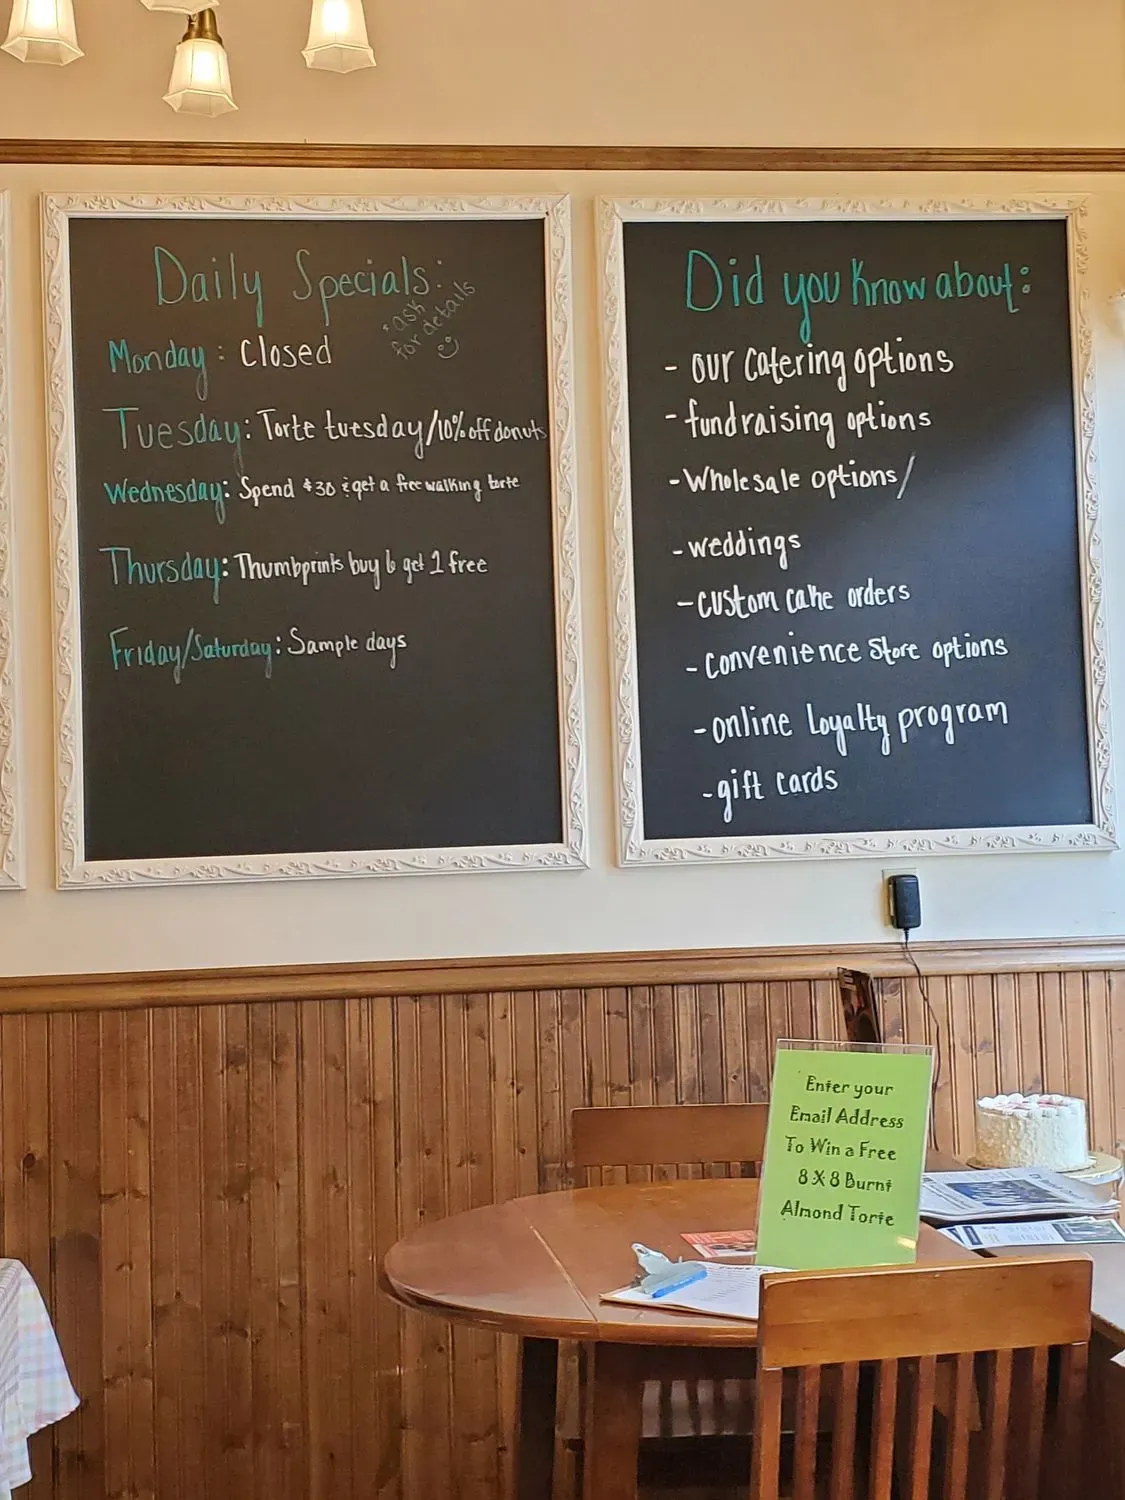 Daily Specials:
*ask
for details
Monday: Closed
Tuesday: Torte tuesday/10% off donuts
Wednesday: Spend $30 & get a free walking torte
Thursday: Thumbprints buy 6 get 1 free
Friday/Saturday: Sample days
Did you know about:
- our catering options
- fundraising options
- Wholesale options/
- weddings
- custom cake orders
- convenience store options
- online loyalty program
- gift cards
Enter your
Email Address
To Win a Free
8 X 8 Burnt
Almond Torte